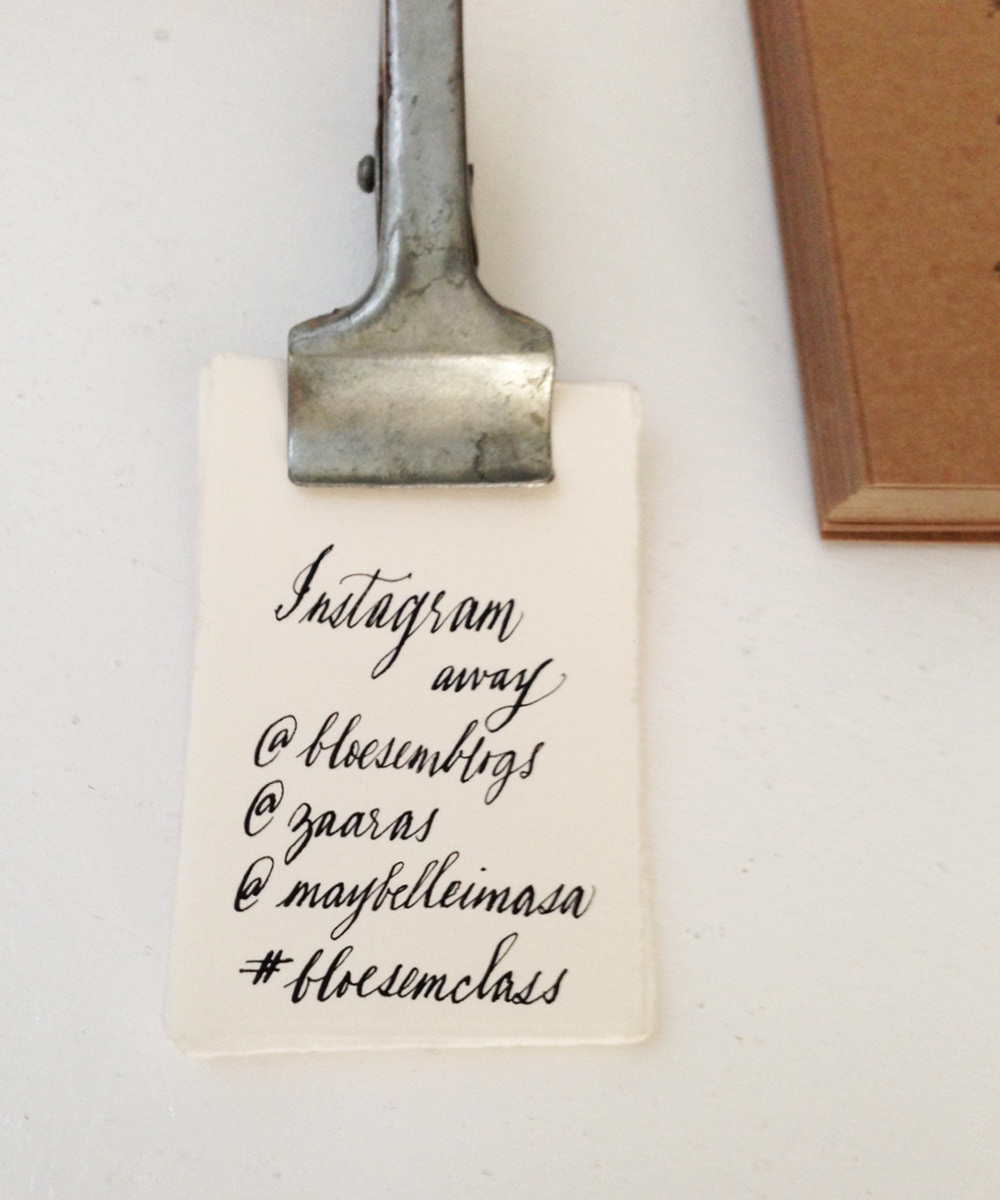 Instagram
away
@bloesemblogs
@zaaras
@maybelleimasa
#bloesemclass